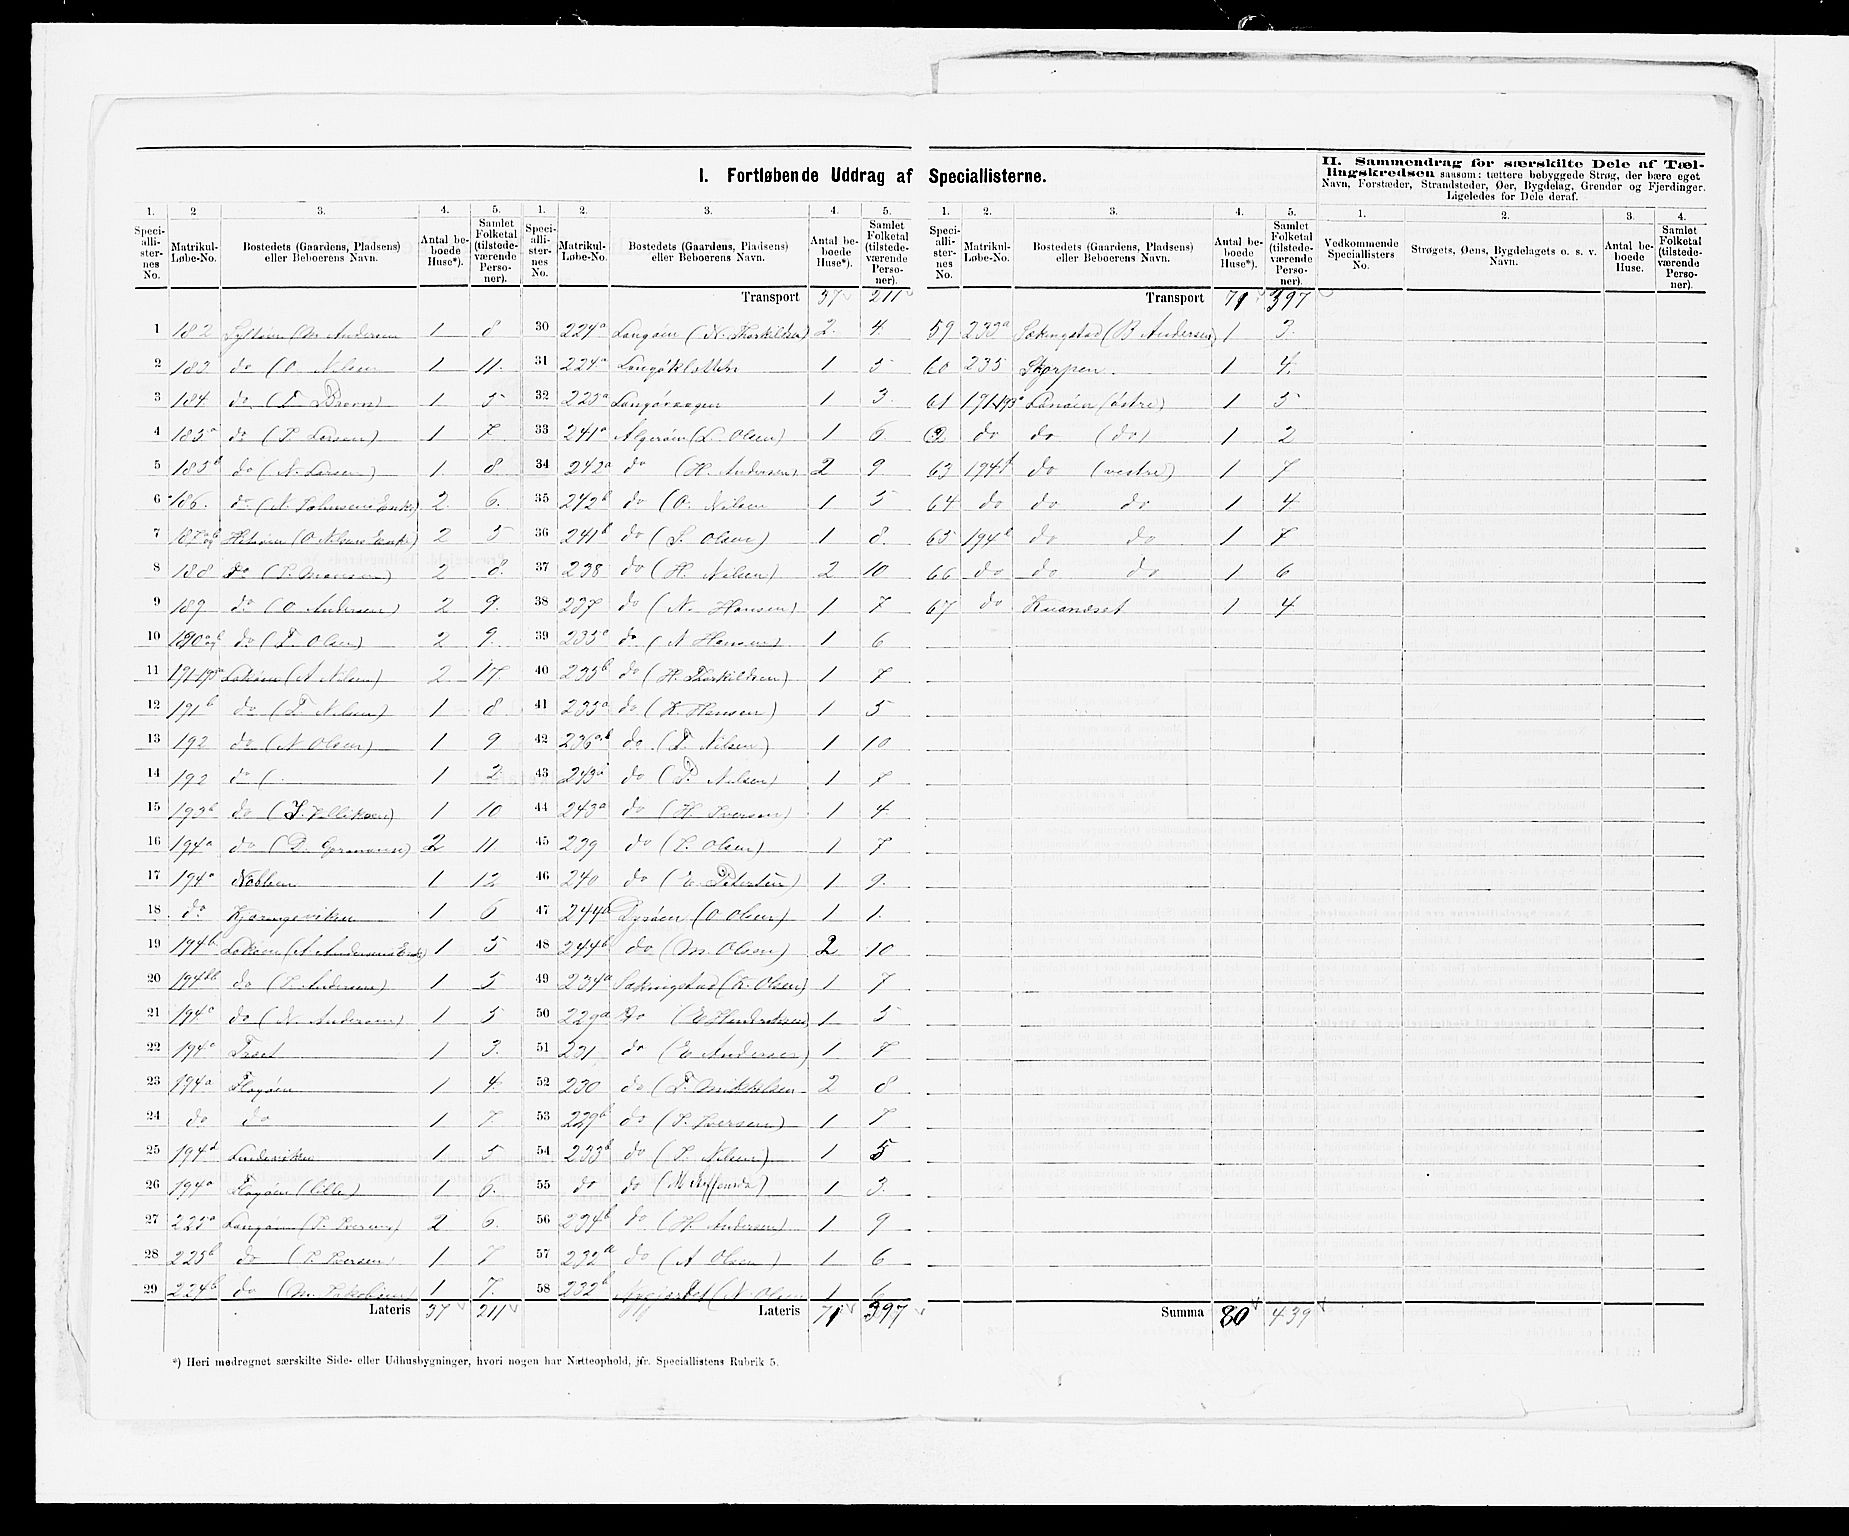 I. Fortløbende Uddrag af Speciallisterne.
II. Sammendrag for særskilte Dele af Tæl-
lingskredsen saasom: tættere bebyggede Strøg, der bære eget
Navn, Forstæder, Strandsteder, Øer, Bygdelag, Grender og Fjerdinger.
Ligeledes for Dele deraf.
1. 2. 3. 4. 5. 1. 2. 3. 4. 5. 1. 2. 3. 4. 5. 1. 2. 3. 4.
Speci-
alli-
ster-
nes
No.
Matrikul-
Løbe-No.
Bostedets (Gaardens, Pladsens)
eller Beboerens Navn.
Antal be-
boede
Huse*).
Samlet
Folketal
(tilstede-
værende
Perso-
ner).
Speci-
alli-
ster-
nes
No.
Matrikul-
Løbe-No.
Bostedets (Gaardens, Pladsens)
eller Beboerens Navn.
Antal be-
boede
Huse*).
Samlet
Folketal
(tilstede-
værende
Perso-
ner).
Speci-
alli-
ster-
nes
No.
Matrikul-
Løbe-No.
Bostedets (Gaardens, Pladsens)
eller Beboerens Navn.
Antal be-
boede
Huse*).
Samlet
Folketal
(tilstede-
værende
Perso-
ner).
Vedkommende
Speciallisters
No.
Strøgets, Øens, Bygdelagets o. s. v.
Navn.
Antal be-
boede
Huse.
Samlet
Folketal
(tilstede-
værende
Perso-
ner).
1 182 (M Andersen 1 8
2 183 do (O. Nilsen 1 11.
3 184 do 1 5
4 185a do (P. Larsen) 1 7.
5 185b do (N. Larsen) 1. 8
6 186. do (N. Enke) 2. 6.
7 (O Nilsens Enke) 2 5
8 188 do (P. Monsen) 2 8.
9 189 do (O Andersen) 2 9.
10 do (T. Olsen) 2 9.
11 (A Nilsen) 2 17.
12 191b do (T Nilsen) 1 8
13 192 do (N Olsen) 1 9
14 192 do ( 1 2
15 193b do 1 10
16 194a do 2 11
17 194a 1 12
18 do 1 6
19 194b (A Andersens Enke) 1 5
20 194bb do (P. Andersen) 1 5
21 194a do (N. Andersen) 1 5
22 194a 1 3.
23 194a Flagøen 1 4.
24 do do 1 7.
25 194d Lindeviken 1. 5
26 194a Flagøen (lille) 1 6.
27 225a Langøen 2 6.
28 225b do (P. Iversen) 1 7
29 224b do 1 7.
Lateris 37 211
Transport 37 211
30 224a Langøen (N. Thorkildsen) 2. 4.
31 224a Langøklatten 1 5
32 225a Langøvaagen 1 3.
33 241a Algerøen (L. Olsen) 1 6.
34 242a do (H. Andersen) 2 9.
35 242b do (O. Nilsen 1 5
36 241b do (S. Olsen) 1 8.
37 238 do (H. Nilsen) 2 10
38 237 do (N. Hansen) 1 7
39 235a do (N Hansen) 1 6
40 235b do (H. Thorkildsen) 1 7
41 235a do (K. Hansen) 1 5
42 do (T. Nilsen) 1 10
43 243a do (P. Nilsen) 1 7
44 243a do (H. Iversen) 1 4
45 239 do (P. Olsen) 1 7
46 240 do (E. Petersen) 1 9.
47 244a Dyrøen (O Olsen) 1 1.
48 244b do (M. Olsen) 2 10
49 234a Sekingstad (K. Olsen) 1 7
50 229a Do (E Hendriksen) 1 5
51 231 do (E Andersen) 1 7
52 230 do (T. Mikkelsen 2 8
53 229b do (P. Iversen) 1 7
54 233b do (P. Nilsen) 1 5
55 do do 1 3.
56 234b do (H. Andersen) 1 9
57 232a do (A Olsen) 1 6
58 232b (N. Olsen 1 6
Lateris 71 397
Transport 71 397
59 233a Sekingstad (B Andersen) 1 3.
60 235 Skorpen 1 4.
61 (østre) 1 5
62 do do (do) 1 2
63 194d do (vestre) 1 7
64 do do do 1 4
65 194b do do 1 7
66 do do do 1 6
67 do Kuaneset 1 4
Summa 80 439
*) Heri medregnet særskilte Side- eller Udhusbygninger, hvori nogen har Natteophold, jfr. Speciallistens Rubrik 5.